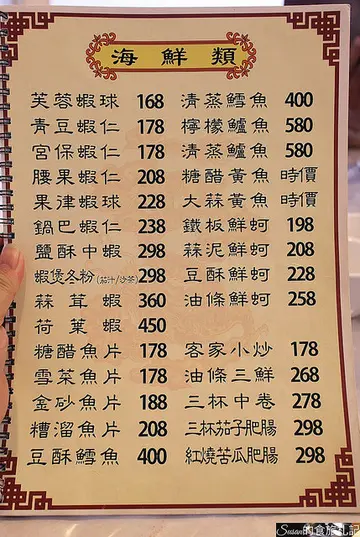 海鮮類
芙蓉蝦球 168
青豆蝦仁 178
宮保蝦仁 178
腰果蝦仁 208
果律蝦球 228
鍋巴蝦仁 238
鹽酥中蝦 298
蝦煲冬粉(茄汁/沙茶) 298
蒜茸蝦 360
荷葉蝦 450
糖醋魚片 178
雪菜魚片 178
金砂魚片 188
糟溜魚片 208
豆酥鱈魚 400
清蒸鱈魚 400
檸檬鱸魚 580
清蒸鱸魚 580
糖醋黃魚 時價
大蒜黃魚 時價
鐵板鮮蚵 198
蒜泥鮮蚵 208
豆酥鮮蚵 228
油條鮮蚵 258
客家小炒 178
油條三鮮 268
三杯中卷 278
三杯茄子肥腸 298
紅燒苦瓜肥腸 298
Susan的食旅札記